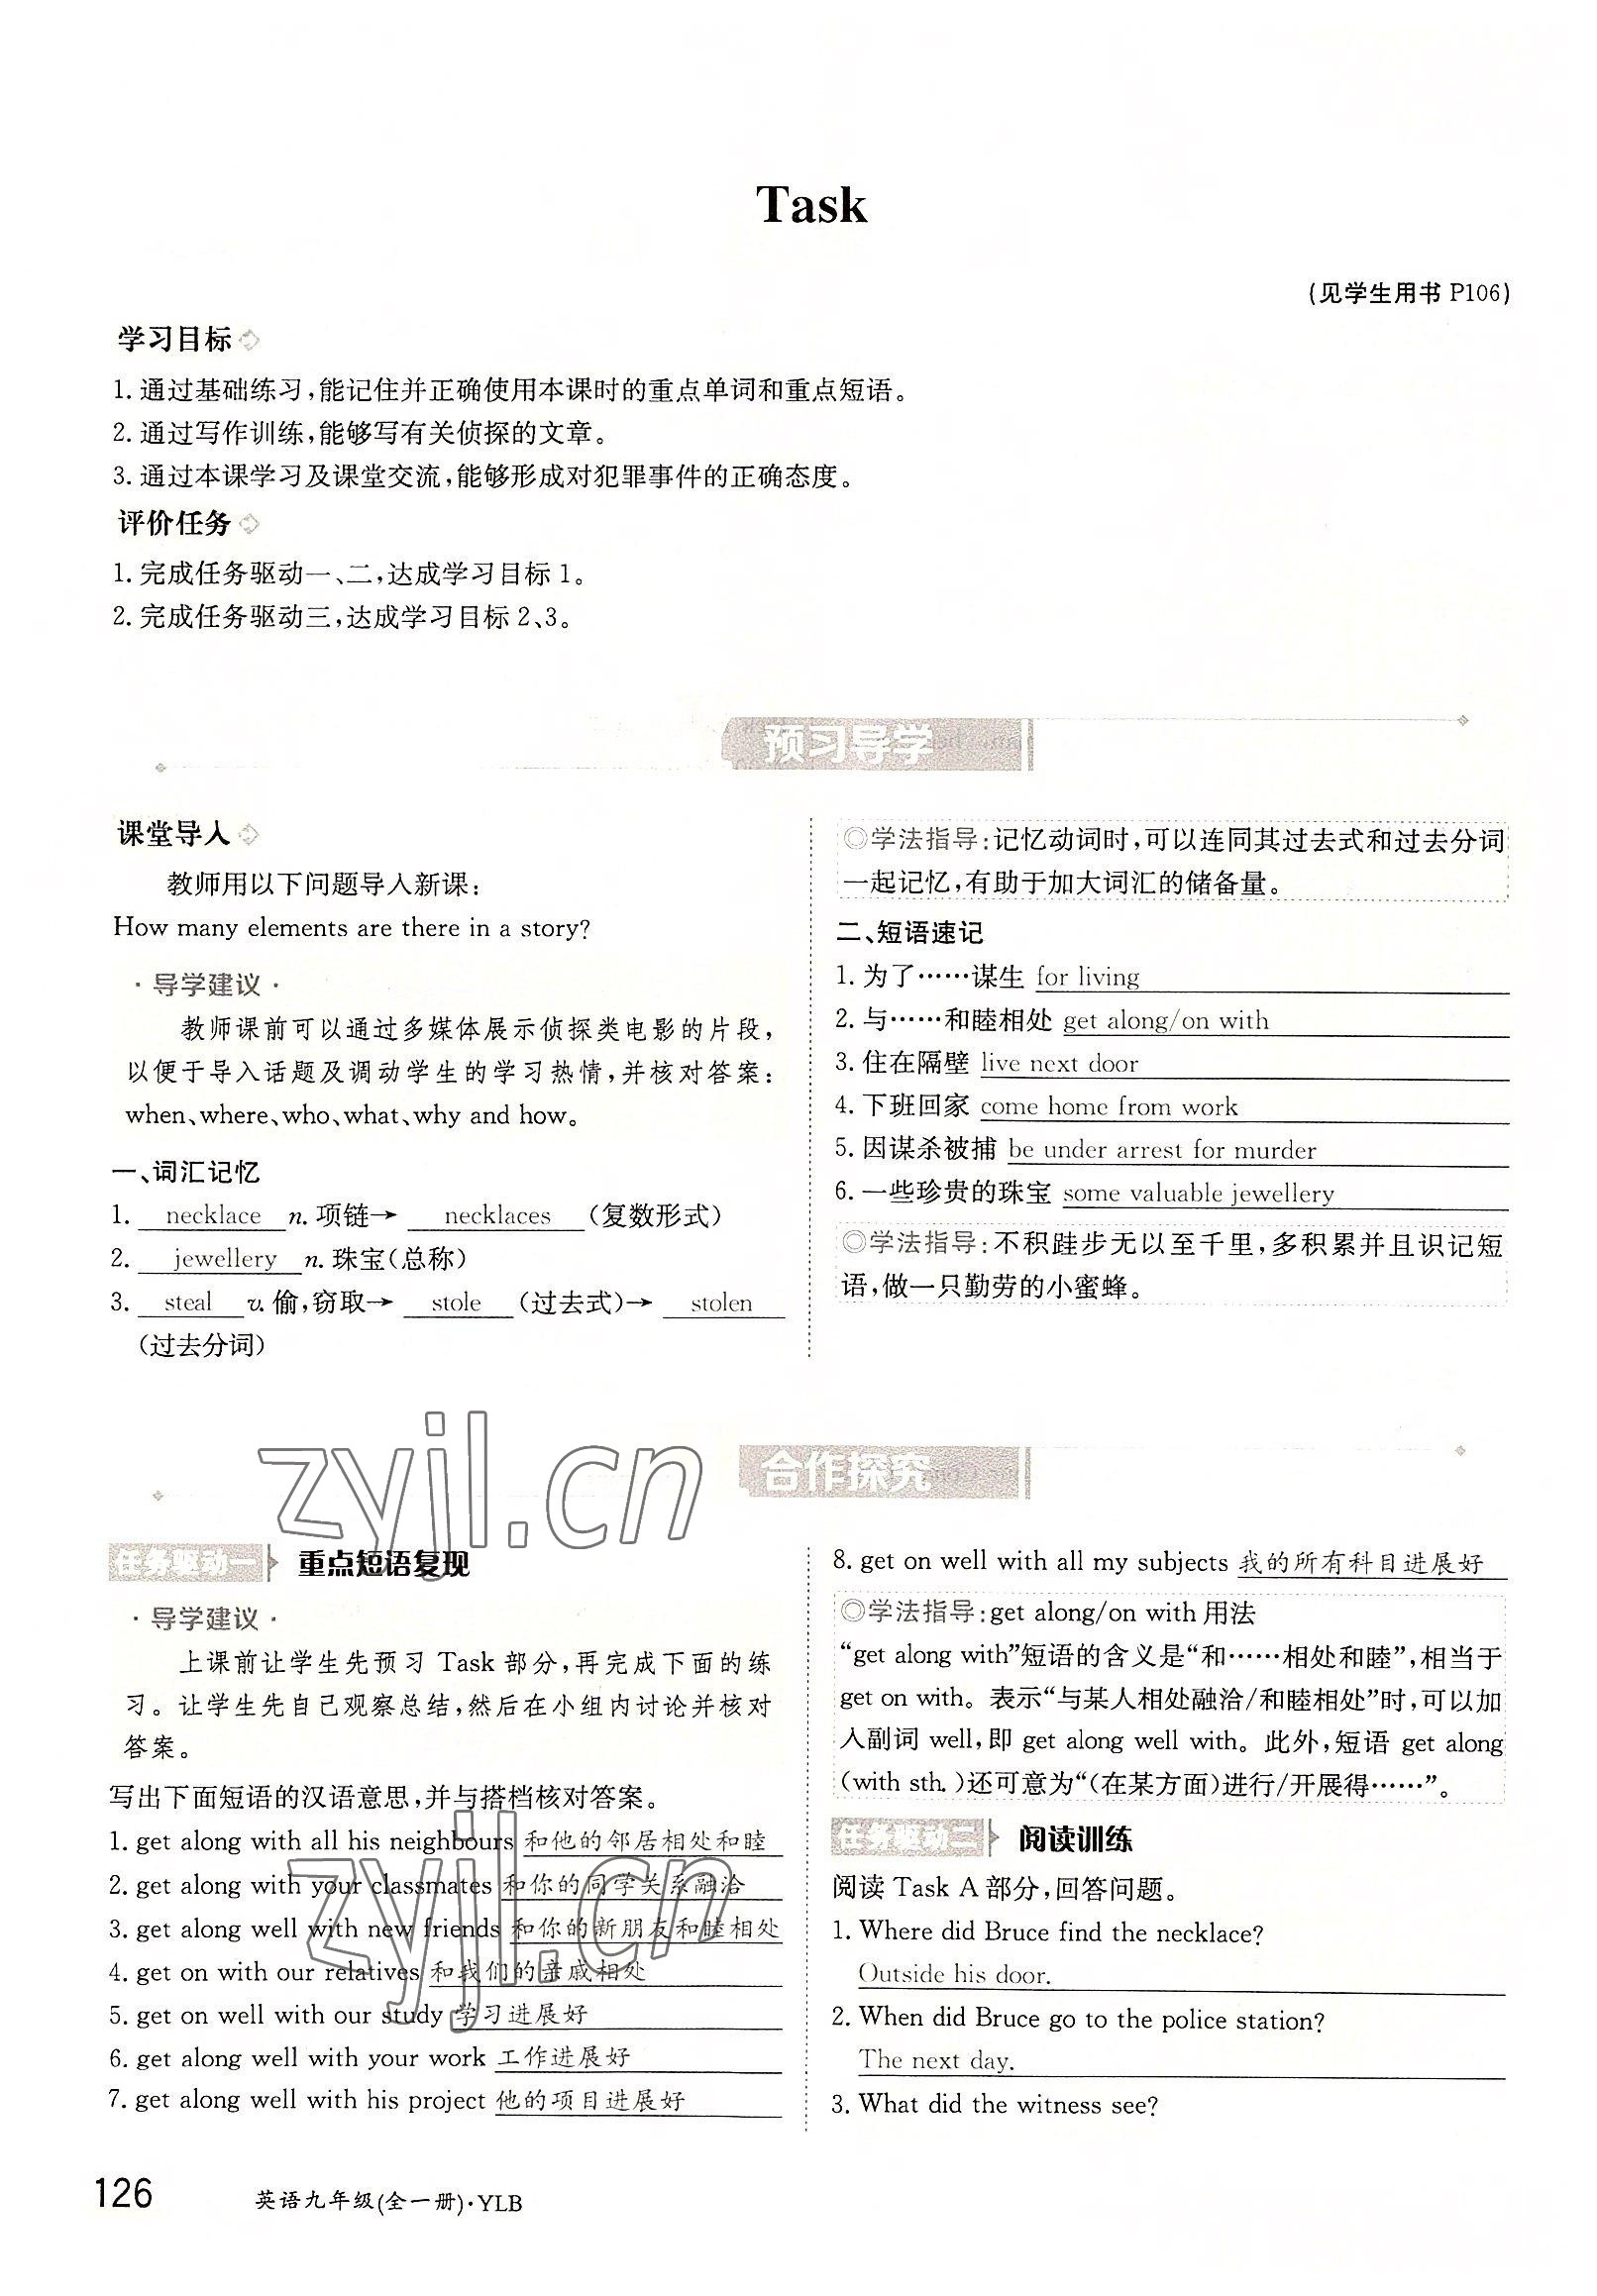 Task
(见学生用书 P106)
学习目标
1. 通过基础练习,能记住并正确使用本课时的重点单词和重点短语。
2. 通过写作训练,能够写有关侦探的文章。
3. 通过本课学习及课堂交流,能够形成对犯罪事件的正确态度。
评价任务
1. 完成任务驱动一、二,达成学习目标 1。
2. 完成任务驱动三,达成学习目标 2、3。
预习导学
课堂导入
教师用以下问题导入新课:
How many elements are there in a story?
·导学建议·
教师课前可以通过多媒体展示侦探类电影的片段,
以便于导入话题及调动学生的学习热情,并核对答案:
when、where、who、what、why and how。
一、词汇记忆
1. necklace n. 项链→ necklaces (复数形式)
2. jewellery n. 珠宝(总称)
3. steal v. 偷,窃取→ stole (过去式)→ stolen
(过去分词)
◎学法指导:记忆动词时,可以连同其过去式和过去分词
一起记忆,有助于加大词汇的储备量。
二、短语速记
1. 为了……谋生 for living
2. 与……和睦相处 get along/on with
3. 住在隔壁 live next door
4. 下班回家 come home from work
5. 因谋杀被捕 be under arrest for murder
6. 一些珍贵的珠宝 some valuable jewellery
◎学法指导:不积跬步无以至千里,多积累并且识记短
语,做一只勤劳的小蜜蜂。
合作探究
zyjl.cn
任务驱动一 重点短语复现
·导学建议·
上课前让学生先预习 Task 部分,再完成下面的练
习。让学生先自己观察总结,然后在小组内讨论并核对
答案。
写出下面短语的汉语意思,并与搭档核对答案。
1. get along with all his neighbours 和他的邻居相处和睦
2. get along with your classmates 和你的同学关系融洽
3. get along well with new friends 和你的新朋友和睦相处
4. get on with our relatives 和我们的亲戚相处
5. get on well with our study 学习进展好
6. get along well with your work 工作进展好
7. get along well with his project 他的项目进展好
zyjl.cn
8. get on well with all my subjects 我的所有科目进展好
◎学法指导:get along/on with 用法
“get along with”短语的含义是“和……相处和睦”,相当于
get on with。表示“与某人相处融洽/和睦相处”时,可以加
入副词 well,即 get along well with。此外,短语 get along
(with sth.)还可意为“(在某方面)进行/开展得……”。
任务驱动二 阅读训练
阅读 Task A 部分,回答问题。
1. Where did Bruce find the necklace?
Outside his door.
2. When did Bruce go to the police station?
The next day.
3. What did the witness see?
126 英语九年级(全一册)·YLB